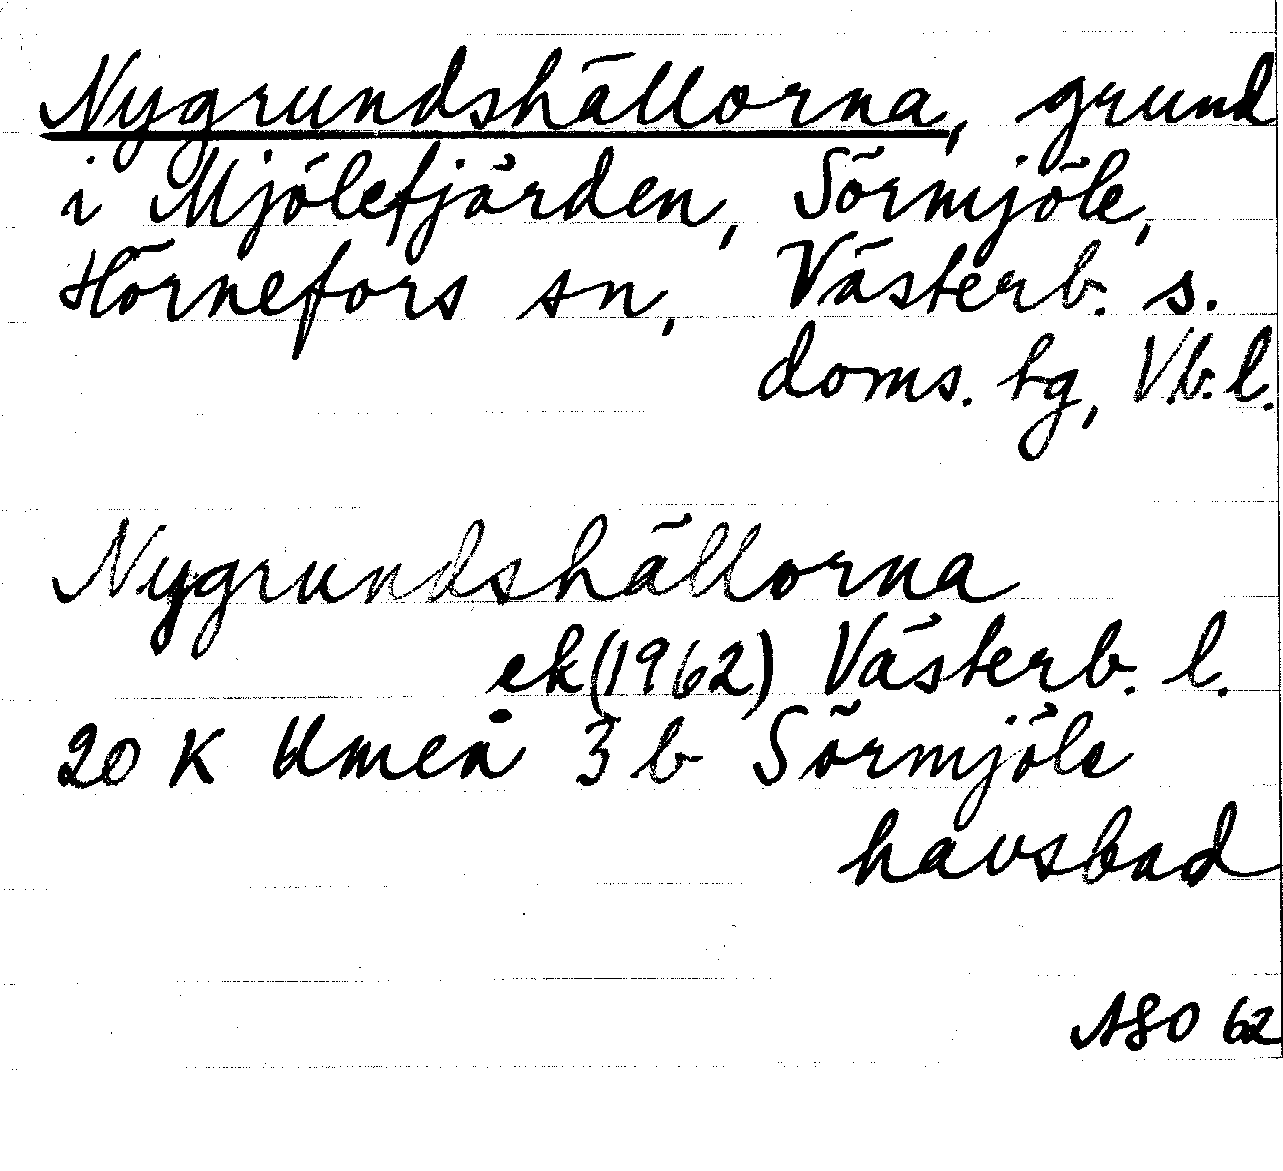 Nygrundshällorna, grund
i Mjölefjärden, Sörmjöle,
Hörnefors sn, Västerb. s.
doms. tg, V.b.l.
Nygrundshällorna
ek (1962) Västerb. l.
20 K Umeå 3 b Sörmjöle
havsbad
ASO 62